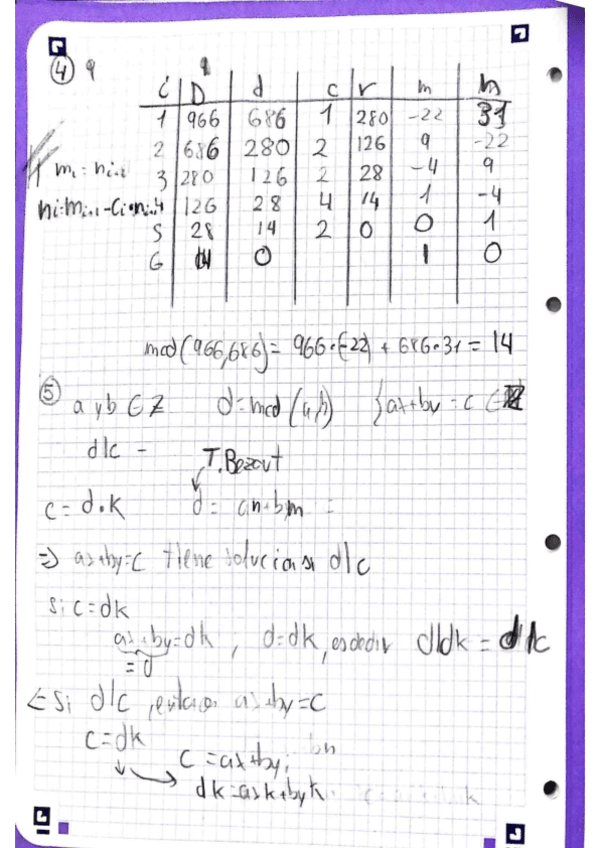 ④ 9
i D d c r m n
1 966 686 1 280 -22 31
2 686 280 2 126 9 -22
3 280 126 2 28 -4 9
4 126 28 4 14 1 -4
5 28 14 2 0 0 1
6 14 0 1 0
mcd(966,686)= 966·(-22) + 686·31 = 14
⑤ a y b ∈ Z d=mcd(a,b) {ax+by = c ∈ Z
d|c -
T. Bezout
c = d·k d = an+bm =
⇒ ax+by=c tiene solucion si d|c
si c=dk
ax+by=dk, d=dk, es decir d|dk = d|c
= d
⇐ Si d|c, entonces ax+by=c
c=dk
c=ax+by;
dk=axk+byk